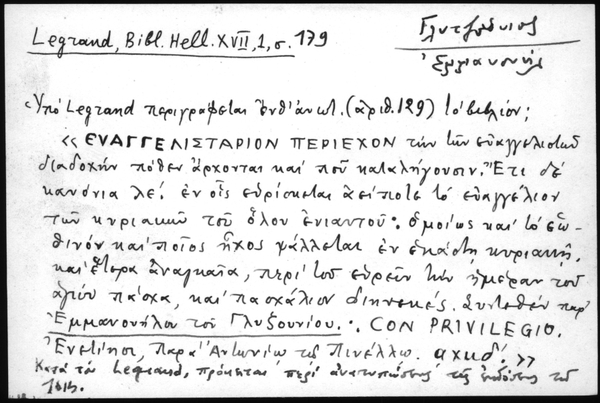 Legrand, Bibl. Hell. XVII, 1, σ. 179
Γλυτζούνιος
Ἐμμανουήλ
Ὑπὸ Legrand περιγράφεται ἐνθ' ἀνωτ. (ἀριθ. 129) τὸ βιβλίον;
«ΕΥΑΓΓΕΛΙΣΤΑΡΙΟΝ ΠΕΡΙΕΧΟΝ τὴν τῶν εὐαγγελιστῶν
διαδοχὴν πόθεν ἄρχονται καὶ ποῦ καταλήγουσιν. Ἔτι δὲ
κανόνια λε΄. ἐν οἷς εὑρίσκεται ἀείποτε τὸ εὐαγγέλιον
τῶν κυριακῶν τοῦ ὅλου ἐνιαυτοῦ· ὁμοίως καὶ τὸ ἑω-
θινόν καὶ ποῖος ἦχος ψάλλεται ἐν ἑκάστῃ κυριακῇ.
καὶ ἕτερα ἀναγκαῖα, περὶ τοῦ εὑρεῖν τὴν ἡμέραν τοῦ
ἁγίου πάσχα, καὶ πασχάλιον διηνεκές. Συντεθὲν παρ'
Ἐμμανουήλου τοῦ Γλυζουνίου. ∴ CON PRIVILEGIO.
Ἐνετίῃσι, Παρὰ Ἀντωνίῳ τῷ Πινέλλῳ. αχκδ΄. »
Κατὰ τὸν Legrand, πρόκειται περὶ ἀνατυπώσεως τῆς ἐκδόσεως τοῦ